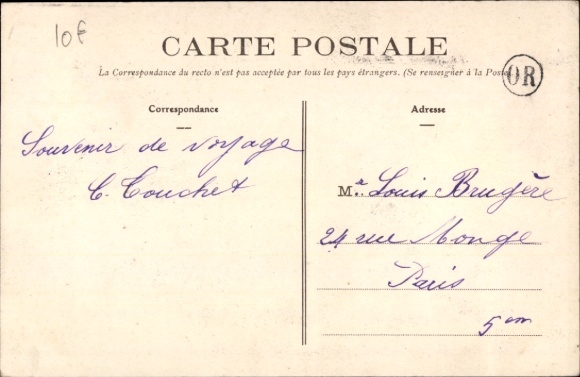 10€
CARTE POSTALE
La Correspondance du recto n'est pas acceptée par tous les pays étrangers. (Se renseigner à la Poste)
OR
Correspondance
Souvenir de voyage
C. Couchet
Adresse
Mr. Louis Brugère
24 rue Monge
Paris
5em